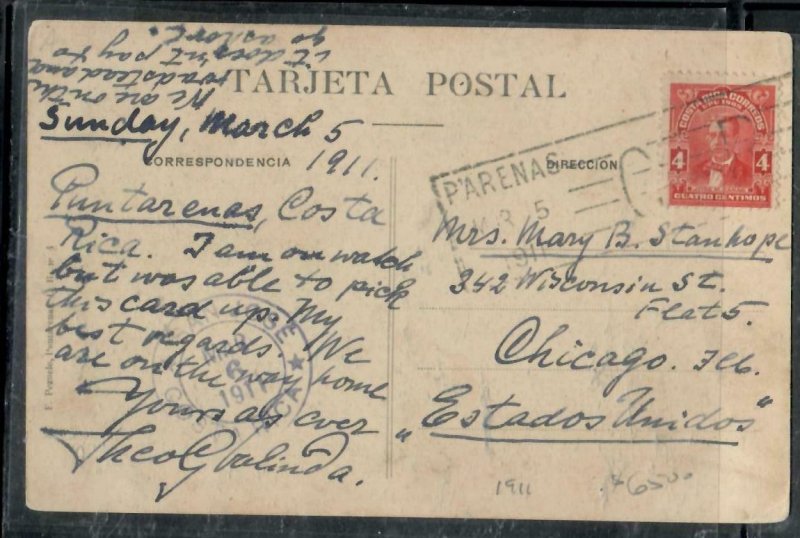 We are on the
roadstead and
it doesn't pay to
go ashore.
TARJETA POSTAL
Sunday, March 5
1911.
CORRESPONDENCIA
Puntarenas, Costa
Rica. I am on watch
but was able to pick
this card up. My
best regards. We
are on the way home
Yours as ever
DIRECCION
COSTA RICA CORREOS
4 4
CUATRO CENTIMOS
P'ARENAS
MAR 5
1911
Mrs. Mary B. Stanhope
342 Wisconsin St.
Flat 5.
Chicago. Ill.
"Estados Unidos"
6
1911
1911